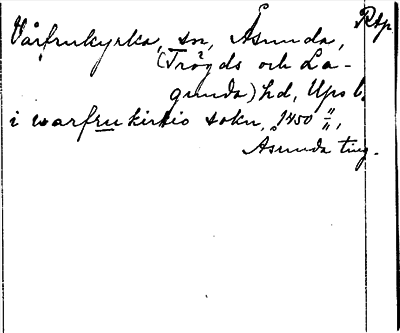 Rtp.
Vårfrukyrka, sn, Åsunda,
(Trögds och La-
gunda) hd, Upsl.
i warfru kirkio sokn, 1450 11/11,
Åsunda ting.